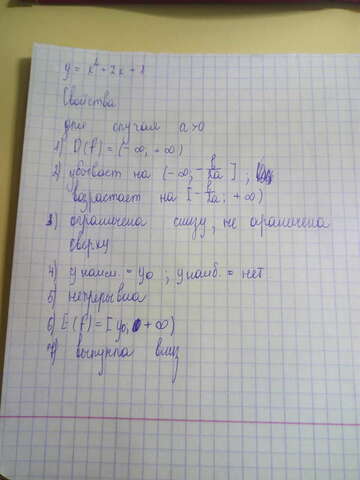 y = x² + 2x + 8
Свойства
для случая a>0
1) D(f) = (-∞; +∞)
2) убывает на (-∞; -b/2a] ;
возрастает на [-b/2a; +∞)
3) ограничена снизу, не ограничена
сверху
4) y наим. = y₀ ; y наиб. = нет
5) непрерывна
6) E(f) = [y₀; +∞)
7) выпукла вниз